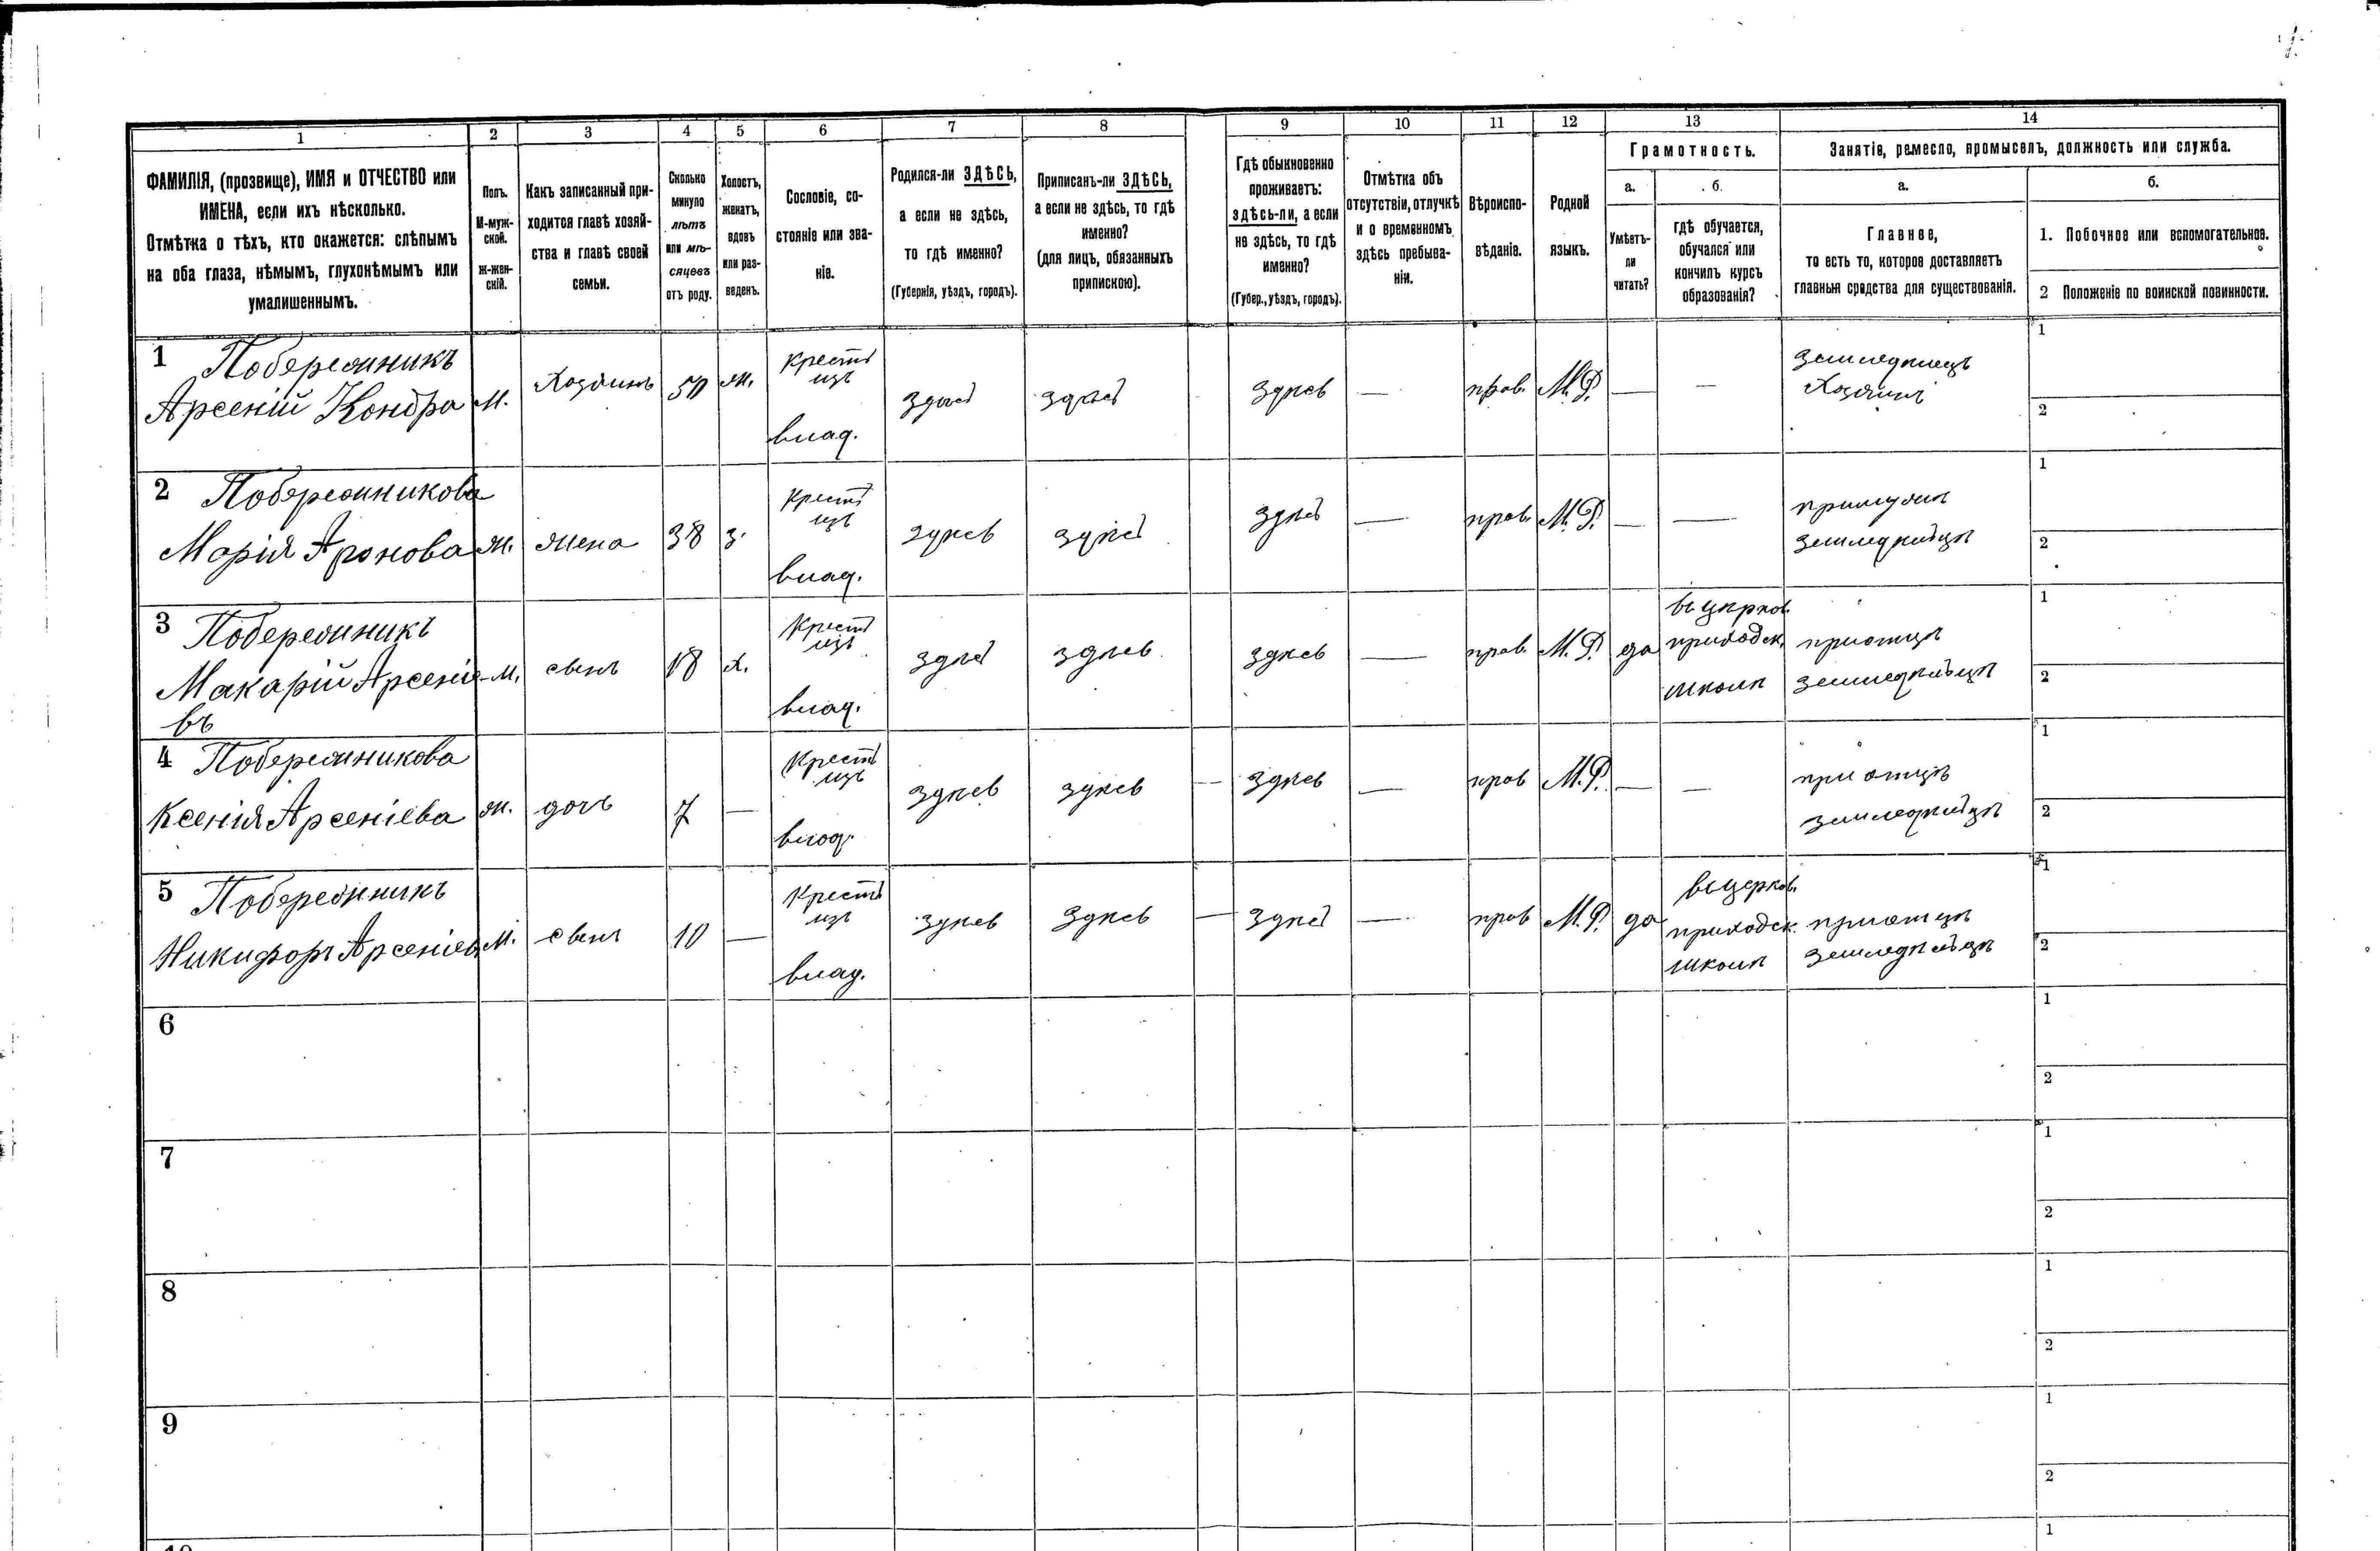 1 2 3 4 5 6 7 8 9 10 11 12 13 14
ФАМИЛІЯ, (прозвище), ИМЯ и ОТЧЕСТВО или
ИМЕНА, если ихъ нѣсколько.
Отмѣтка о тѣхъ, кто окажется: слѣпымъ
на оба глаза, нѣмымъ, глухонѣмымъ или
умалишеннымъ.
Полъ.
М-муж-
ской.
Ж-жен-
скій.
Какъ записанный при-
ходится главѣ хозяй-
ства и главѣ своей
семьи.
Сколько
минуло
лѣтъ
или мѣ-
сяцевъ
отъ роду.
Холостъ,
женатъ,
вдовъ
или раз-
веденъ.
Сословіе, со-
стояніе или зва-
ніе.
Родился-ли ЗДѢСЬ,
а если не здѣсь,
то гдѣ именно?
(Губернія, уѣздъ, городъ).
Приписанъ-ли ЗДѢСЬ,
а если не здѣсь, то гдѣ
именно?
(для лицъ, обязанныхъ
припискою).
Гдѣ обыкновенно
проживаетъ:
здѣсь-ли, а если
не здѣсь, то гдѣ
именно?
(Губер., уѣздъ, городъ).
Отмѣтка объ
отсутствіи, отлучкѣ
и о временномъ
здѣсь пребыва-
ніи.
Вѣроиспо-
вѣданіе.
Родной
языкъ.
Грамотность.
а.
Умѣетъ-
ли
читать?
б.
гдѣ обучается,
обучался или
кончилъ курсъ
образованія?
Занятіе, ремесло, промыселъ, должность или служба.
а.
Главное,
то есть то, которое доставляетъ
главныя средства для существованія.
б.
1. Побочное или вспомогательное.
2 Положеніе по воинской повинности.
1 Побережникъ
Арсеній Кондра
М.
Хозяинъ
50
ж.
крест
изъ
влад.
здѣсь
здѣсь
здѣсь
—
прав.
М.Р.
—
—
земледѣлецъ
Хозяинъ
1
2
2 Побережникова
Марія Аронова
ж.
жена
38
з.
крест
изъ
влад.
здѣсь
здѣсь
здѣсь
—
прав.
М.Р.
—
—
при мужѣ
земледѣльцѣ
1
2
3 Побережникъ
Макарій Арсеніе
въ
М.
сынъ
18
х.
Крест
изъ
влад.
здѣсь
здѣсь
здѣсь
—
прав.
М.Р.
да
въ церков.
приходск.
школѣ
при отцѣ
земледѣльцѣ
1
2
4 Побережникова
Ксенія Арсеніева
ж.
дочь
7
—
Крест
изъ
влад.
здѣсь
здѣсь
—
здѣсь
—
прав
М.Р.
—
—
при отцѣ
земледѣльцѣ
1
2
5 Побережникъ
Никифоръ Арсеніев
М.
сынъ
10
—
Крест
изъ
влад.
здѣсь
здѣсь
—
здѣсь
—
прав
М.Р.
да
въ церков.
приходск.
школѣ
при отцѣ
земледѣльцѣ
1
2
6
1
2
7
1
2
8
1
2
9
1
2
1